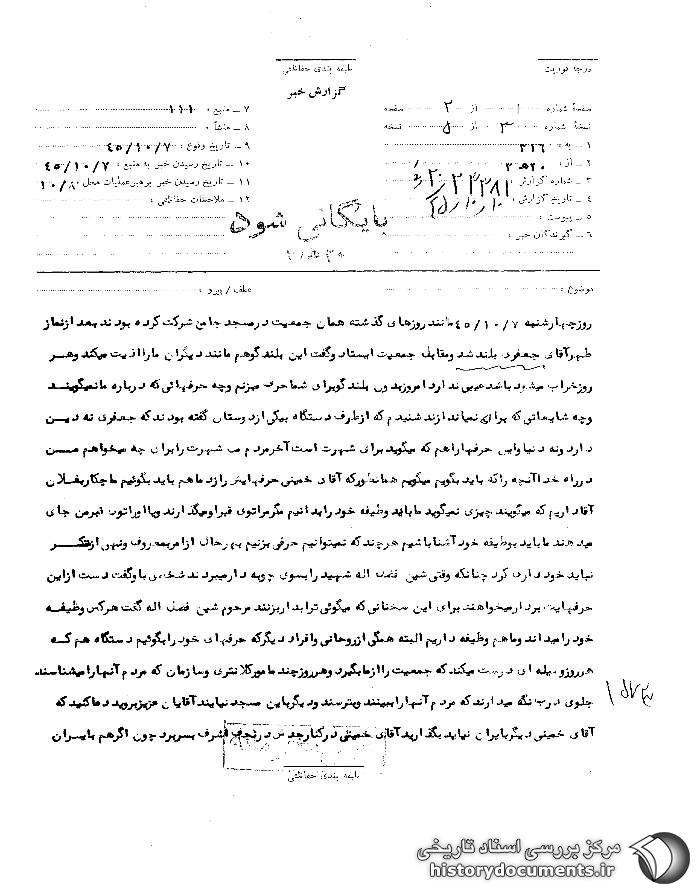 درجه فوریت
طبقه بندی حفاظتی
گزارش خبر
صفحهٔ شماره ۱ از ۲ صفحه
نسخهٔ شماره ۳ از ۵ نسخه
۱ ــ به : ۳۱۶
۲ ــ از :
۳ ــ شماره گزارش :
۴ ــ تاریخ گزارش :
۵ ــ پیوست :
۶ ــ گیرندگان خبر :
۷ ــ منبع : ۱۱۱
۸ ــ منشأ :
۹ ــ تاریخ وقوع : ۴۵/۱۰/۷
۱۰ ــ تاریخ رسیدن خبر به منبع : ۴۵/۱۰/۷
۱۱ ــ تاریخ رسیدن خبر برهبر عملیات محل ۱۰/۸
۱۲ ــ ملاحظات حفاظتی :
بایگانی شود
موضوع :
عطف / پیرو :
روزچهارشنبه ۴۵/۱۰/۷ مانند روزهای گذشته همان جمعیت درمسجد جامع شرکت کرده بودند بعد ازنماز
ظهرآقای جعفری بلند شد ومقابل جمعیت ایستاد وگفت این بلند گوهم مانند دیگران مارا اذیت میکند وهر
روزخراب میشود باشد عیبی ندارد امروزبدون بلند گوبرای شما حرف میزنم وچه حرفهائی که درباره ما نمیگویند
وچه شایعاتی که برای نمیاندازند شنیدم که ازطرف دستگاه بیکی ازدوستان گفته بودند که جعفری نه دین
دارد ونه دنیا واین حرفهارا هم که میگوید برای شهرت است آخرمردم من شهرت را برای چه میخواهم من
درراه خدا آنچه را که باید بگویم میگویم همانطورکه آقای خمینی حرفهایش را زد ما هم باید بگوئیم ما چکاربفلان
آقا داریم که میگویند چیزی نمیگوید ما باید وظیفه خود را بدانیم مگرمرا توی قبراومیگذارند ویا اورا توی قبرمن جای
میدهند ما باید بوظیفه خود آشنا باشیم هرچند که نمیتوانیم حرفی بزنیم بهرحال ازامربمعروف ونهی ازمنکر
نباید خود داری کرد چنانکه وقتی شیخ فضل اله شهید را بسوی چوبه دارمیبردند شخصی با وگفت دست ازاین
حرفهایت بردارمیخواهند برای این سخنانی که میگوئی ترا بداربزنند مرحوم شیخ فضل اله گفت هرکس وظیفه
خود را میداند وماهم وظیفه داریم البته همگی ازروحانی وافراد دیگرکه حرفهای خود را بگوئیم دستگاه هم که
هرروزوسیله ای درست میکند که جمعیت را ازما بگیرد وهرروزچند ماموركلانتری وسازمان که مردم آنهارا میشناسند
جلوی درب نگه میدارند که مردم آنهارا ببینند وبترسند ودیگرباین مسجد نیایند آقایان عزیزبروید دعا کنید که
آقای خمینی دیگربایران نیاید بگذارید آقای خمینی درکنارجدش درنجف اشرف بسربرد چون اگرهم بایران
طبقه بندی حفاظتی
مرکز بررسی اسناد تاریخی
historydocuments.ir